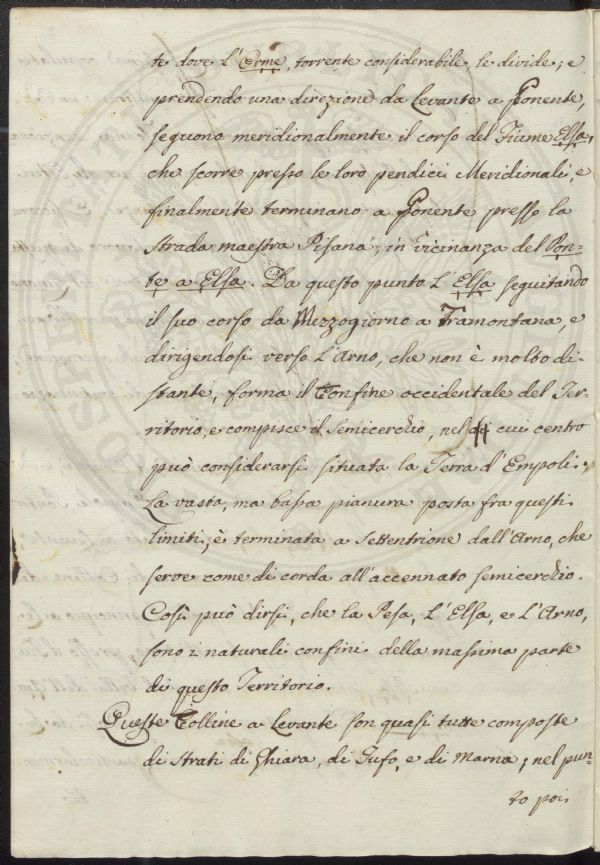 te dove l'Orme, torrente considerabile, le divide; e
prendendo una direzione da Levante a Ponente,
seguono meridionalmente il corso del Fiume Elsa,
che scorre presso le loro pendici Meridionali, e
finalmente terminano a Ponente presso la
Strada maestra Pisana, in vicinanza del Pon-
te a Elsa. Da questo punto l'Elsa seguitando
il suo corso da Mezzogiorno a Tramontana, e
dirigendosi verso l'Arno, che non è molto di-
stante, forma il Confine occidentale del Ter-
ritorio, e compisce il Semicerchio, nel di cui centro
può considerarsi situata la Terra d'Empoli.
La vasta, ma bassa pianura posta fra questi
limiti, è terminata a Settentrione dall'Arno, che
serve come di corda all'accennato semicerchio.
Così può dirsi, che la Pesa, l'Elsa, e l'Arno,
sono i naturali confini della massima parte
di questo Territorio.
Queste Colline a Levante son quasi tutte composte
di strati di Ghiara, di Tufo, e di Marna; nel pun-
to poi